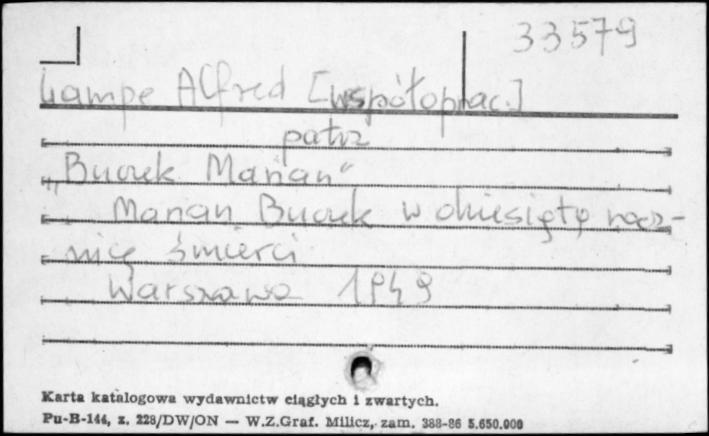 33579
Lampe Alfred [współoprac.]
patrz
"Buczek Marian"
Marian Buczek w dziesiątą rocz-
nicę śmierci
Warszawa 1949
Karta katalogowa wydawnictw ciągłych i zwartych.
Pu-B-144, z. 228/DW/ON — W.Z.Graf. Milicz, zam. 388-86 5.650.000